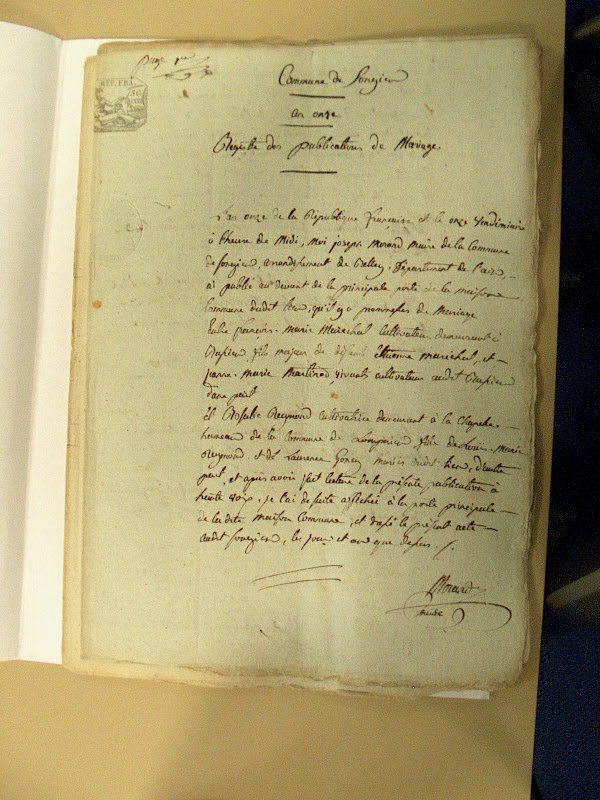 Page 1re
REP. FRA.
Commune de Songieu
an onze
Registre des publications de Mariage.
L'an onze de la République française et le onze vendimiaire
à l'heure de Midi, Moi joseph Morand Maire de la Commune
de Songieu, arrondissement de Belley, Département de l'ain,
ai publié au devant de la principale porte de la maison
Commune dudit lieu, qu'il y a promesses de Mariage
Entre françois-Marie Marechal Cultivateur demeurant à
fils majeur de défunt Etienne marechal, et
jeanne-Marie Martinod, vivants cultivateurs audit
d'une part
Et Reymond cultivatrice demeurant à la Chapelle
de la commune de fille de Louis-Marie
Reymond, et de Laurence mariés dudit lieu, d'autre
part, et après avoir fait lecture de la présente publication à
haute voix, je l'ai de suite affichée à la porte principale
de la dite Maison Commune, et dressé le présent acte
audit Songieu, les jour et an que dessus ./.
Morand
maire